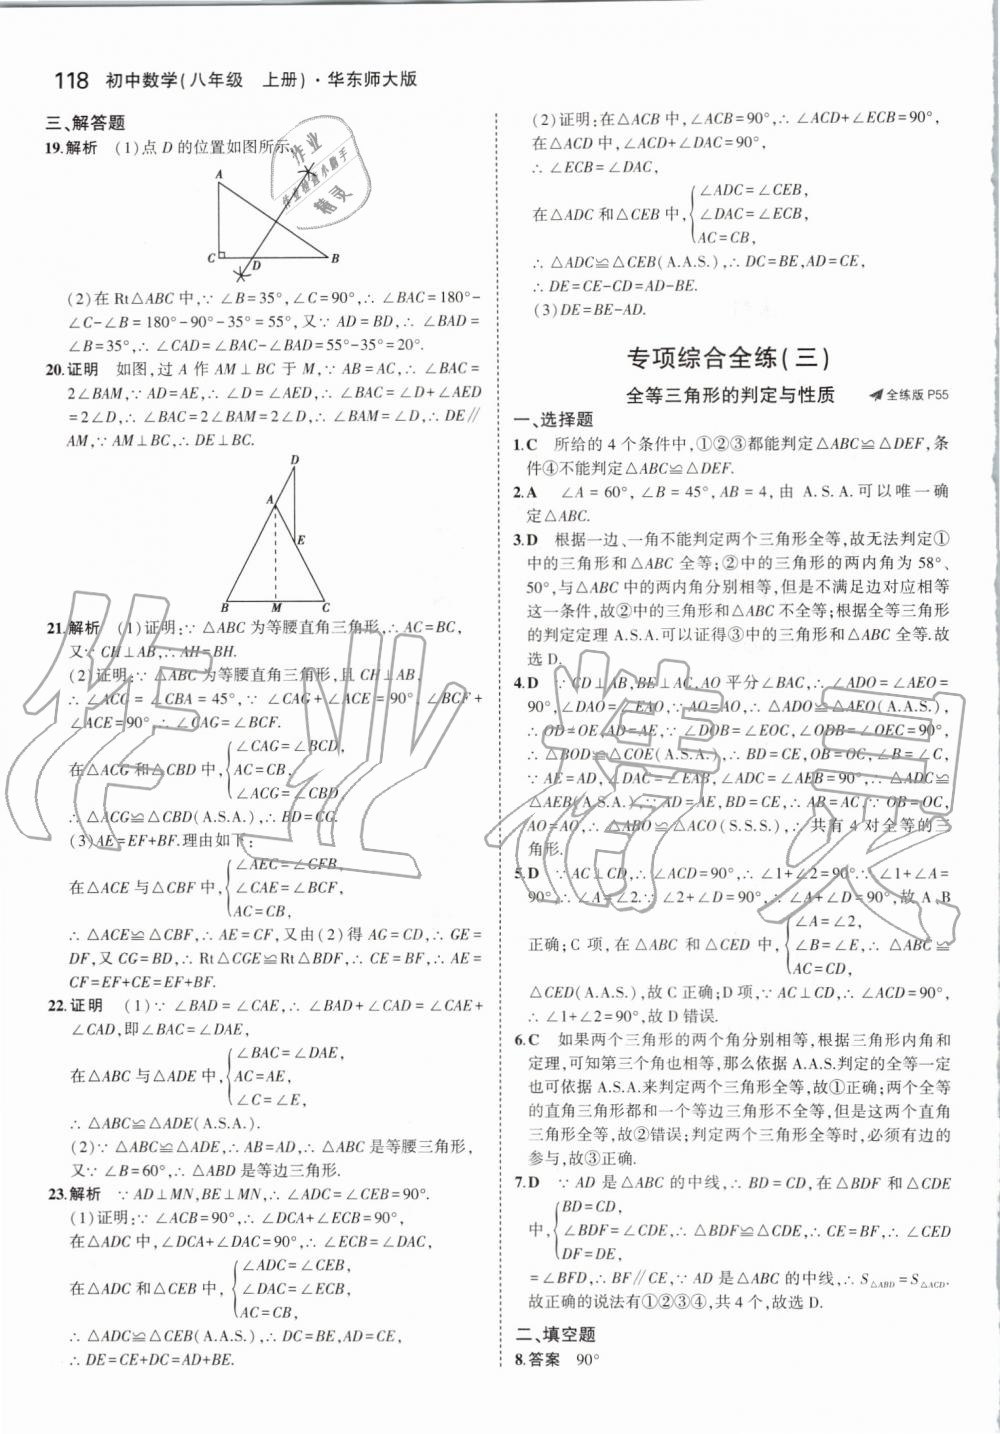 118 初中数学(八年级 上册)·华东师大版
三、解答题
19.解析 (1)点 D 的位置如图所示.
A
C
D
B
(2)在 Rt△ABC 中,∵∠B=35°,∠C=90°,∴∠BAC=180°-
∠C-∠B=180°-90°-35°=55°,又∵AD=BD,∴∠BAD=
∠B=35°,∴∠CAD=∠BAC-∠BAD=55°-35°=20°.
20.证明 如图,过 A 作 AM⊥BC 于 M,∵AB=AC,∴∠BAC=
2∠BAM,∵AD=AE,∴∠D=∠AED,∴∠BAC=∠D+∠AED
=2∠D,∴∠BAC=2∠BAM=2∠D,∴∠BAM=∠D,∴DE∥
AM,∵AM⊥BC,∴DE⊥BC.
D
A
E
B
M
C
21.解析 (1)证明:∵△ABC 为等腰直角三角形,∴AC=BC,
又∵CH⊥AB,∴AH=BH.
(2)证明:∵△ABC 为等腰直角三角形,且 CH⊥AB,
∴∠ACG=∠CBA=45°,∵∠CAG+∠ACE=90°,∠BCF+
∠ACE=90°,∴∠CAG=∠BCF.
∠CAG=∠BCD,
在△ACG 和△CBD 中, AC=CB,
∠ACG=∠CBD,
∴△ACG≌△CBD(A.S.A.),∴BD=CG.
(3)AE=EF+BF.理由如下:
∠AEC=∠CFB,
在△ACE 与△CBF 中, ∠CAE=∠BCF,
AC=CB,
∴△ACE≌△CBF,∴AE=CF,又由(2)得 AG=CD,∴GE=
DF,又 CG=BD,∴Rt△CGE≌Rt△BDF,∴CE=BF,∴AE=
CF=EF+CE=EF+BF.
22.证明 (1)∵∠BAD=∠CAE,∴∠BAD+∠CAD=∠CAE+
∠CAD,即∠BAC=∠DAE,
∠BAC=∠DAE,
在△ABC 与△ADE 中, AC=AE,
∠C=∠E,
∴△ABC≌△ADE(A.S.A.).
(2)∵△ABC≌△ADE,∴AB=AD,∴△ABC 是等腰三角形,
又∵∠B=60°,∴△ABD 是等边三角形.
23.解析 ∵AD⊥MN,BE⊥MN,∴∠ADC=∠CEB=90°.
(1)证明:∵∠ACB=90°,∴∠DCA+∠ECB=90°,
在△ADC 中,∠DCA+∠DAC=90°,∴∠ECB=∠DAC,
∠ADC=∠CEB,
在△ADC 和△CEB 中, ∠DAC=∠ECB,
AC=CB,
∴△ADC≌△CEB(A.A.S.),∴DC=BE,AD=CE,
∴DE=CE+DC=AD+BE.
(2)证明:在△ACB 中,∠ACB=90°,∴∠ACD+∠ECB=90°,
在△ACD 中,∠ACD+∠DAC=90°,
∴∠ECB=∠DAC,
∠ADC=∠CEB,
在△ADC 和△CEB 中, ∠DAC=∠ECB,
AC=CB,
∴△ADC≌△CEB(A.A.S.),∴DC=BE,AD=CE,
∴DE=CE-CD=AD-BE.
(3)DE=BE-AD.
专项综合全练(三)
全等三角形的判定与性质 全练版 P55
一、选择题
1.C 所给的 4 个条件中,①②③都能判定△ABC≌△DEF,条
件④不能判定△ABC≌△DEF.
2.A ∠A=60°,∠B=45°,AB=4,由 A.S.A.可以唯一确
定△ABC.
3.D 根据一边、一角不能判定两个三角形全等,故无法判定①
中的三角形和△ABC 全等;②中的三角形的两内角为 58°、
50°,与△ABC 中的两内角分别相等,但是不满足边对应相等
这一条件,故②中的三角形和△ABC 不全等;根据全等三角形
的判定定理 A.S.A.可以证得③中的三角形和△ABC 全等.故
选 D.
4.D ∵CD⊥AB,BE⊥AC,AO 平分∠BAC,∴∠ADO=∠AEO=
90°,∠DAO=∠EAO,∵AO=AO,∴△ADO≌△AEO(A.A.S.),
∴OD=OE,AD=AE,∵∠DOB=∠EOC,∠ODB=∠OEC=90°,
∴△BOD≌△COE(A.S.A.),∴BD=CE,OB=OC,∠B=∠C,
∵AE=AD,∠DAC=∠EAB,∠ADC=∠AEB=90°,∴△ADC≌
△AEB(A.S.A.),∵AD=AE,BD=CE,∴AB=AC,∵OB=OC,
AO=AO,∴△ABO≌△ACO(S.S.S.),∴共有 4 对全等的三
角形.
5.D ∵AC⊥CD,∴∠ACD=90°,∴∠1+∠2=90°,∵∠1+∠A=
90°,∴∠A=∠2.∵∠2+∠D=90°,∴∠A+∠D=90°,故 A、B
∠A=∠2,
正确;C 项,在△ABC 和△CED 中, ∠B=∠E, ∴△ABC≌
AC=CD,
△CED(A.A.S.),故 C 正确;D 项,∵AC⊥CD,∴∠ACD=90°,
∴∠1+∠2=90°,故 D 错误.
6.C 如果两个三角形的两个角分别相等,根据三角形内角和
定理,可知第三个角也相等,那么依据 A.A.S.判定的全等一定
也可依据 A.S.A.来判定两个三角形全等,故①正确;两个全等
的直角三角形都和一个等边三角形不全等,但是这两个直角
三角形全等,故②错误;判定两个三角形全等时,必须有边的
参与,故③正确.
7.D ∵AD 是△ABC 的中线,∴BD=CD,在△BDF 和△CDE
BD=CD,
中, ∠BDF=∠CDE, ∴△BDF≌△CDE,∴CE=BF,∴∠CED
DF=DE,
=∠BFD,∴BF∥CE,∵AD 是△ABC 的中线,∴S△ABD=S△ACD.
故正确的说法有①②③④,共 4 个,故选 D.
二、填空题
8.答案 90°